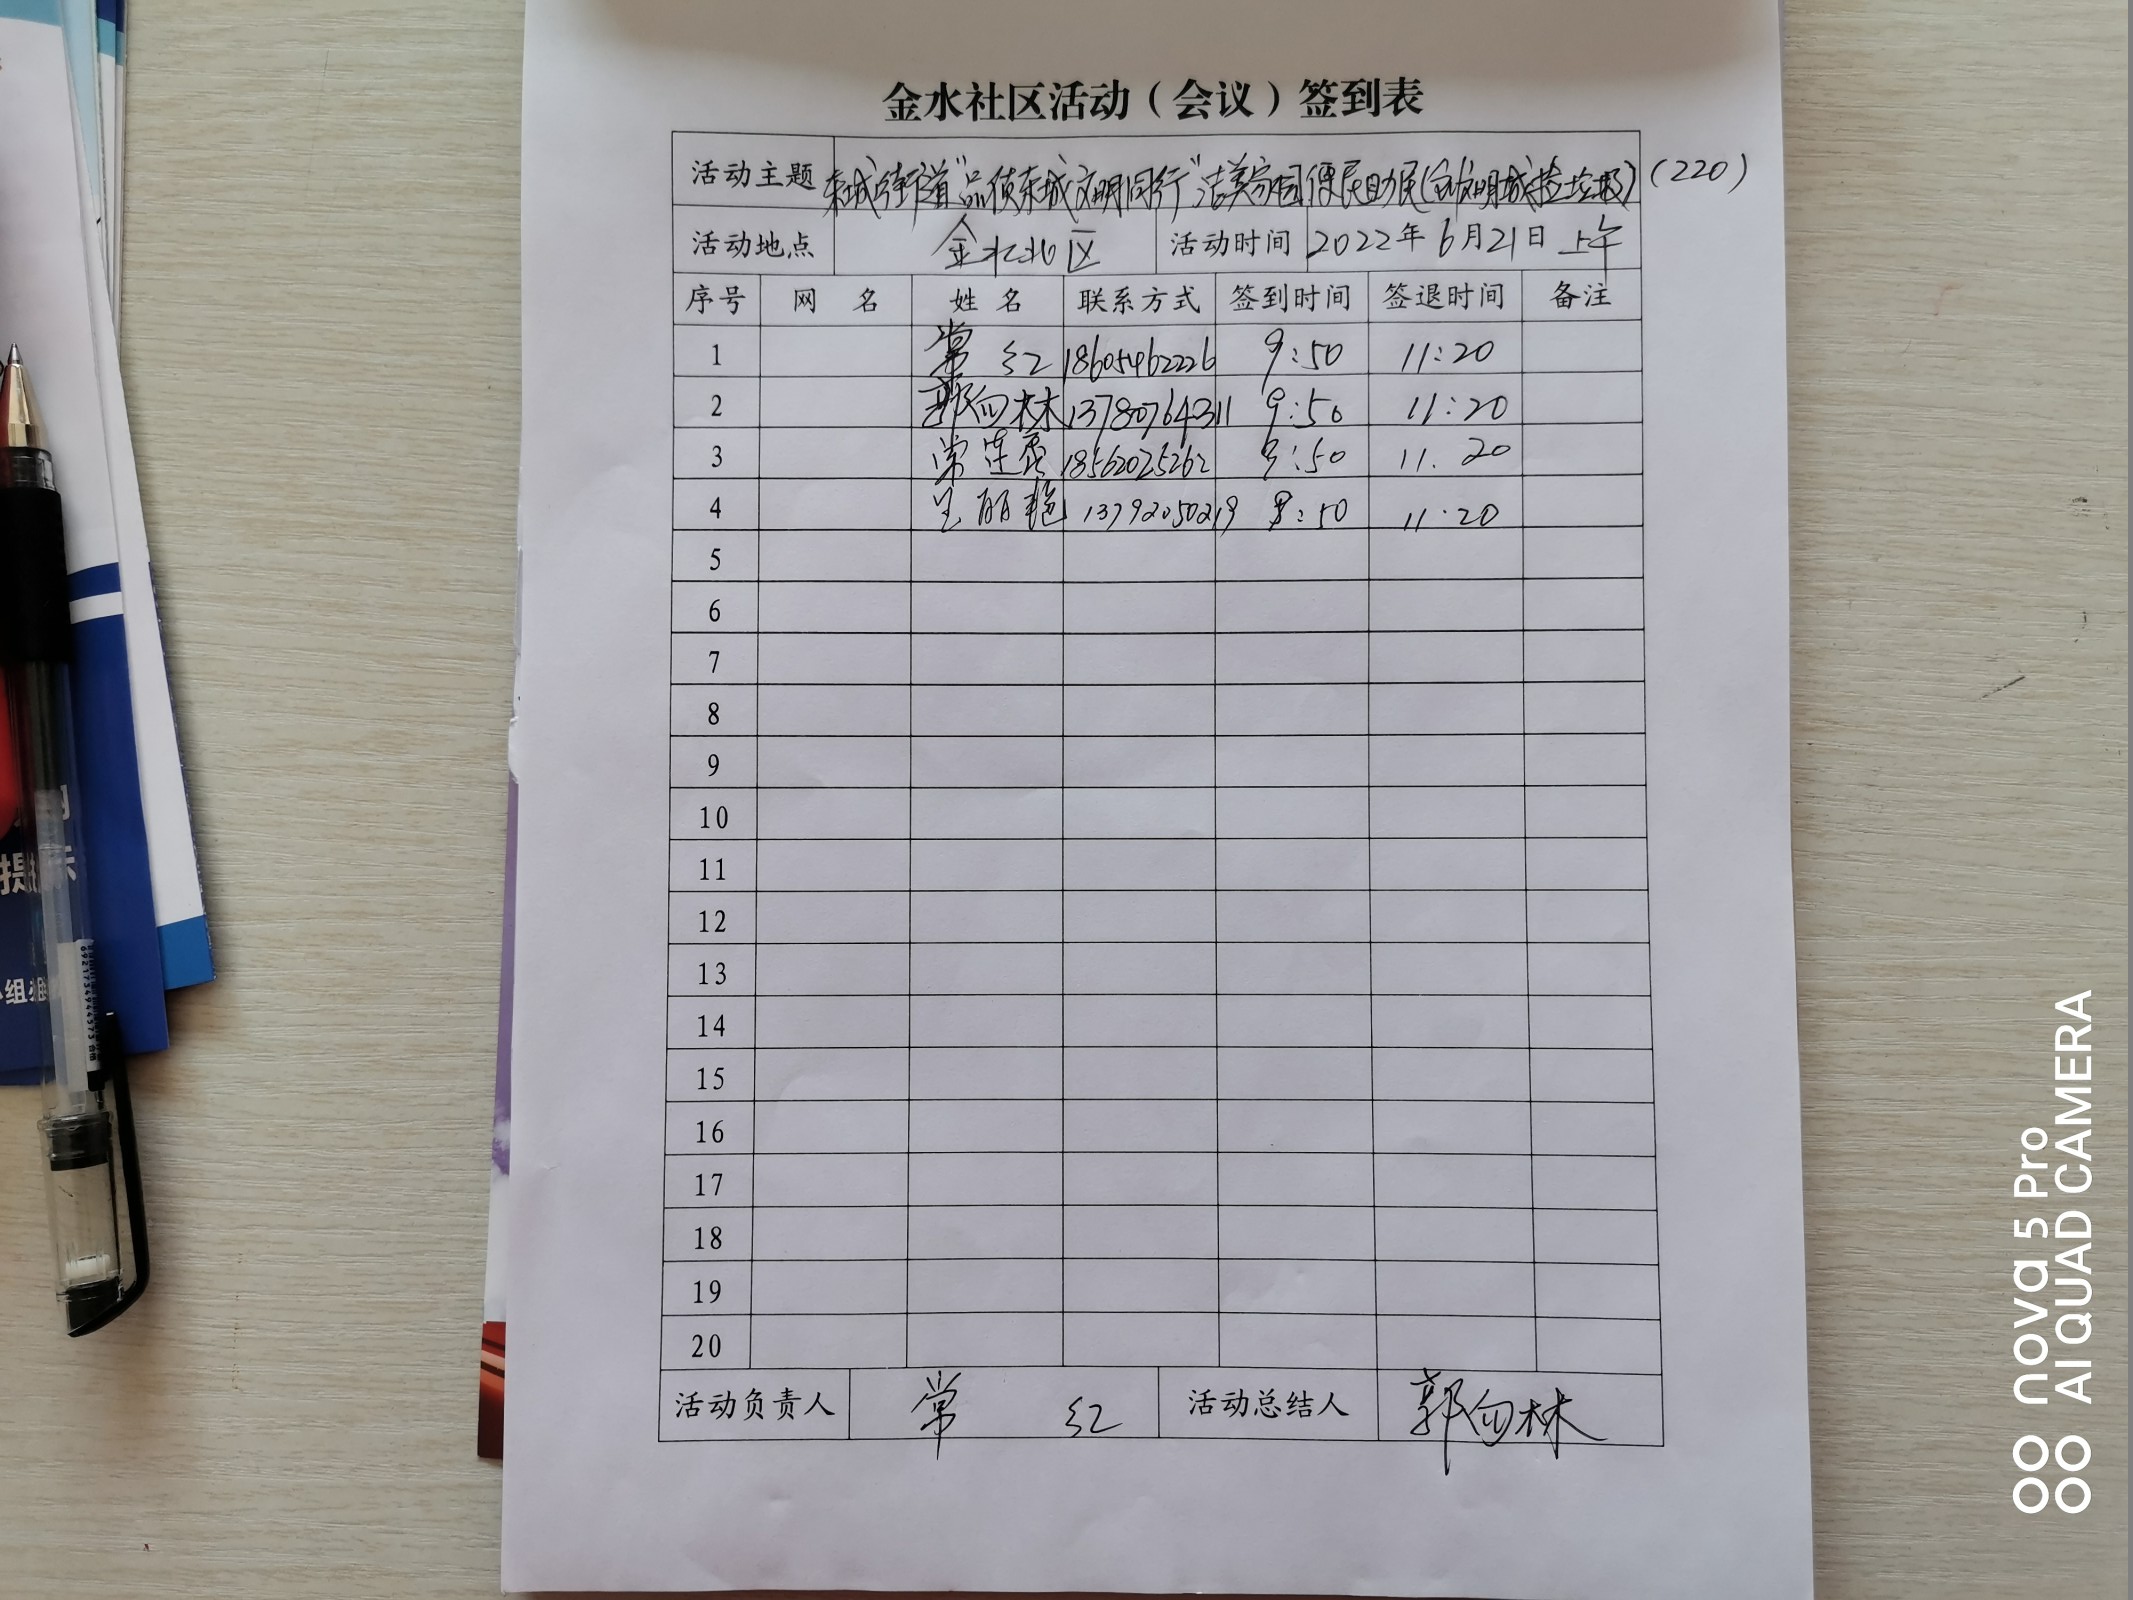 金水社区活动（会议）签到表
活动主题 东城街道"品质东城文明同行"洁美家园便民助民(创文明城捡垃圾)(220)
活动地点 金水北区 活动时间 2022年6月21日上午
序号 网 名 姓 名 联系方式 签到时间 签退时间 备注
1 常 红 18605462226 9:50 11:20
2 郭向林 13780764311 9:50 11:20
3 常莲 18562025262 9:50 11.20
4 丽艳 13792050219 9:50 11·20
5
6
7
8
9
10
11
12
13
14
15
16
17
18
19
20
活动负责人 常 红 活动总结人 郭向林
提示
小组
nova 5 Pro
AI QUAD CAMERA